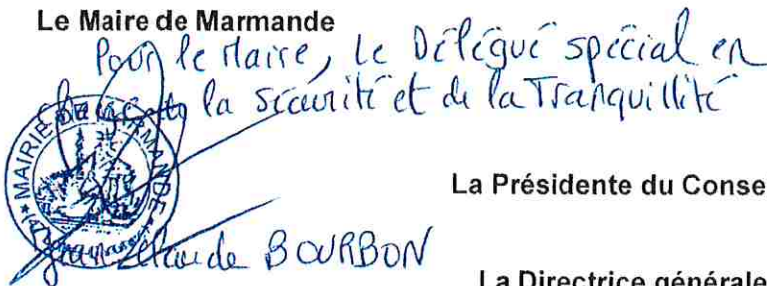 Le Maire de Marmande
Pour le Maire, Le Délégué spécial en
charge de la sécurité et de la Tranquillité
MAIRIE DE MARMANDE
La Présidente du Conse
Jean-Claude BOURBON
La Directrice générale